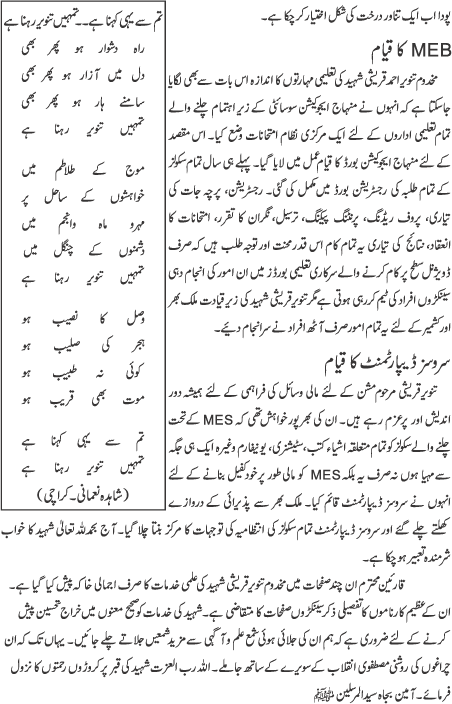 پودا اب ایک تناور درخت کی شکل اختیار کر چکا ہے۔
MEB کا قیام
مخدوم تنویر احمد قریشی شہید کی تعلیمی مہارتوں کا اندازہ اس بات سے بھی لگایا
جا سکتا ہے کہ انہوں نے منہاج ایجوکیشن سوسائٹی کے زیر اہتمام چلنے والے
تمام تعلیمی اداروں کے لئے ایک مرکزی نظام امتحانات وضع کیا۔ اس مقصد
کے لئے منہاج ایجوکیشن بورڈ کا قیام عمل میں لایا گیا۔ پہلے ہی سال تمام سکولز
کے تمام طلبہ کی رجسٹریشن بورڈ میں مکمل کی گئی۔ رجسٹریشن، پرچہ جات کی
تیاری، پروف ریڈنگ، پرنٹنگ پیکنگ، ترسیل، نگران کا تقرر، امتحانات کا
انعقاد، نتائج کی تیاری یہ تمام کام اس قدر محنت اور توجہ طلب ہیں کہ صرف
ڈویژنل سطح پر کام کرنے والے سرکاری تعلیمی بورڈز میں ان امور کی انجام دہی
سینکڑوں افراد کی ٹیم کر رہی ہوتی ہے مگر تنویر قریشی شہید کی زیر قیادت ملک بھر
اور کشمیر کے لئے یہ تمام امور صرف آٹھ افراد نے سر انجام دیئے۔
سروسز ڈیپارٹمنٹ کا قیام
تنویر قریشی مرحوم مشن کے لئے مالی وسائل کی فراہمی کے لئے ہمیشہ دور
اندیش اور پرعزم رہے ہیں۔ ان کی بھرپور خواہش تھی کہ MES کے تحت
چلنے والے سکولز کو تمام متعلقہ اشیاء کتب، سٹیشنری، یونیفارم وغیرہ ایک ہی جگہ
سے مہیا ہوں نہ صرف یہ بلکہ MES کو مالی طور پر خود کفیل بنانے کے لئے
انہوں نے سروسز ڈیپارٹمنٹ قائم کیا۔ ملک بھر سے پذیرائی کے دروازے
کھلتے چلے گئے اور سروسز ڈیپارٹمنٹ تمام سکولز کی انتظامیہ کی توجہات کا مرکز بنتا چلا گیا۔ آج بحمدللہ تعالیٰ شہید کا خواب
شرمندہ تعبیر ہو چکا ہے۔
قارئین محترم ان چند صفحات میں مخدوم تنویر قریشی شہید کی علمی خدمات کا صرف اجمالی خاکہ پیش کیا گیا ہے۔
ان کے عظیم کارناموں کا تفصیلی ذکر سینکڑوں صفحات کا متقاضی ہے۔ شہید کی خدمات کو صحیح معنوں میں خراج تحسین پیش
کرنے کے لئے ضروری ہے کہ ہم ان کی جلائی ہوئی شمع علم و آگہی سے مزید شمعیں جلاتے چلے جائیں۔ یہاں تک کہ ان
چراغوں کی روشنی مصطفوی انقلاب کے سویرے کے ساتھ جا ملے۔ اللہ رب العزت شہید کی قبر پر کروڑوں رحمتوں کا نزول
فرمائے۔ آمین بجاہ سید المرسلین ﷺ
تم سے یہی کہنا ہے۔۔ تمہیں تنویر رہنا ہے
راہ دشوار ہو پھر بھی
دل میں آزار ہو پھر بھی
سامنے ہار ہو پھر بھی
تمہیں تنویر رہنا ہے
موج کے طلاطم میں
خواہشوں کے ساحل پر
مہرو ماہ وانجم میں
دشمنوں کے چنگل میں
تمہیں تنویر رہنا ہے
وصل کا نصیب ہو
ہجر کی صلیب ہو
کوئی نہ طبیب ہو
موت بھی قریب ہو
تم سے یہی کہنا ہے
تمہیں تنویر رہنا ہے
(شاہدہ نعمانی۔ کراچی)